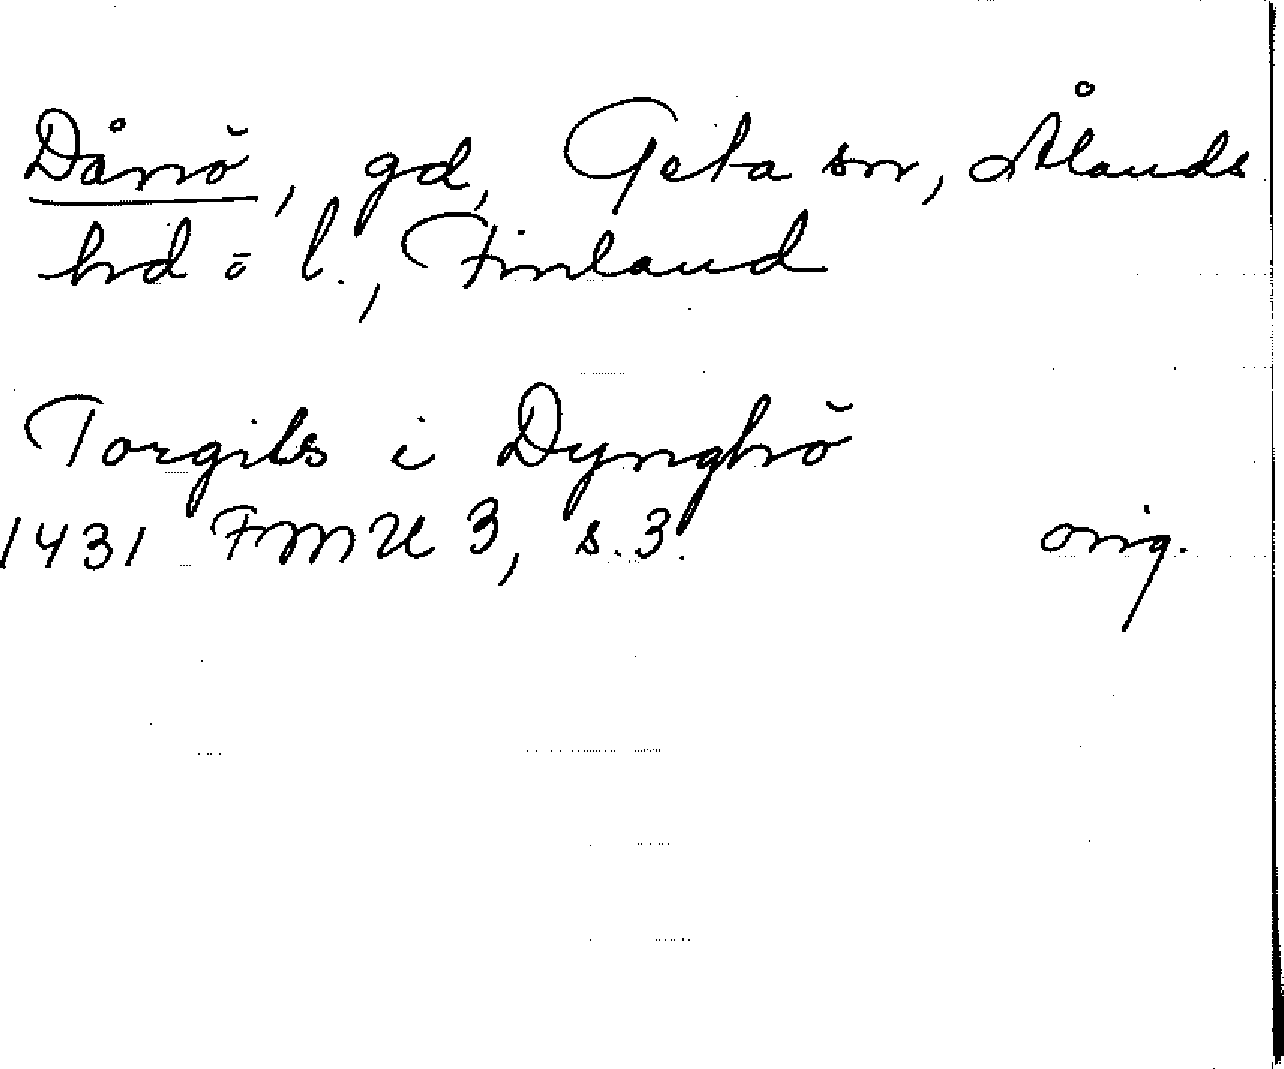 Dånö, gd, Geta sn, Ålands
hd o l., Finland
Torgils i Dynghö
1431 FMU 3, s. 3.
orig.